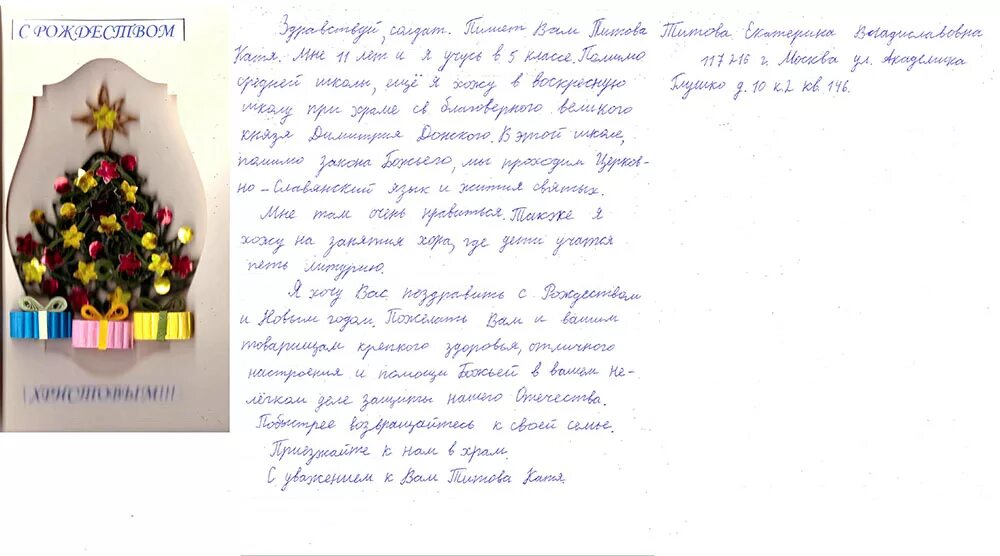 С РОЖДЕСТВОМ
ХРИСТОВЫМ!!!
Здравствуй, солдат. Пишет Вам Титова
Катя. Мне 11 лет и я учусь в 5 классе. Помимо
средней школы, ещё я хожу в воскресную
школу при храме св благоверного великого
князя Димитрия Донского. В этой школе,
помимо закона Божьего, мы проходим Церков-
но-Славянский язык и жития святых.
Мне там очень нравиться. Также я
хожу на занятия хора, где дети учатся
петь литургию.
Я хочу Вас поздравить с Рождеством
и Новым годом. Пожелать Вам и вашим
товарищам крепкого здоровья, отличного
настроения и помощи Божьей в вашем не-
лёгком деле защиты нашего Отечества.
Побыстрее возвращайтесь к своей семье.
Приезжайте к нам в храм.
С уважением к Вам Титова Катя.
Титова Екатерина Владиславовна
117216 г. Москва ул. Академика
Глушко д. 10 к.2 кв. 146.